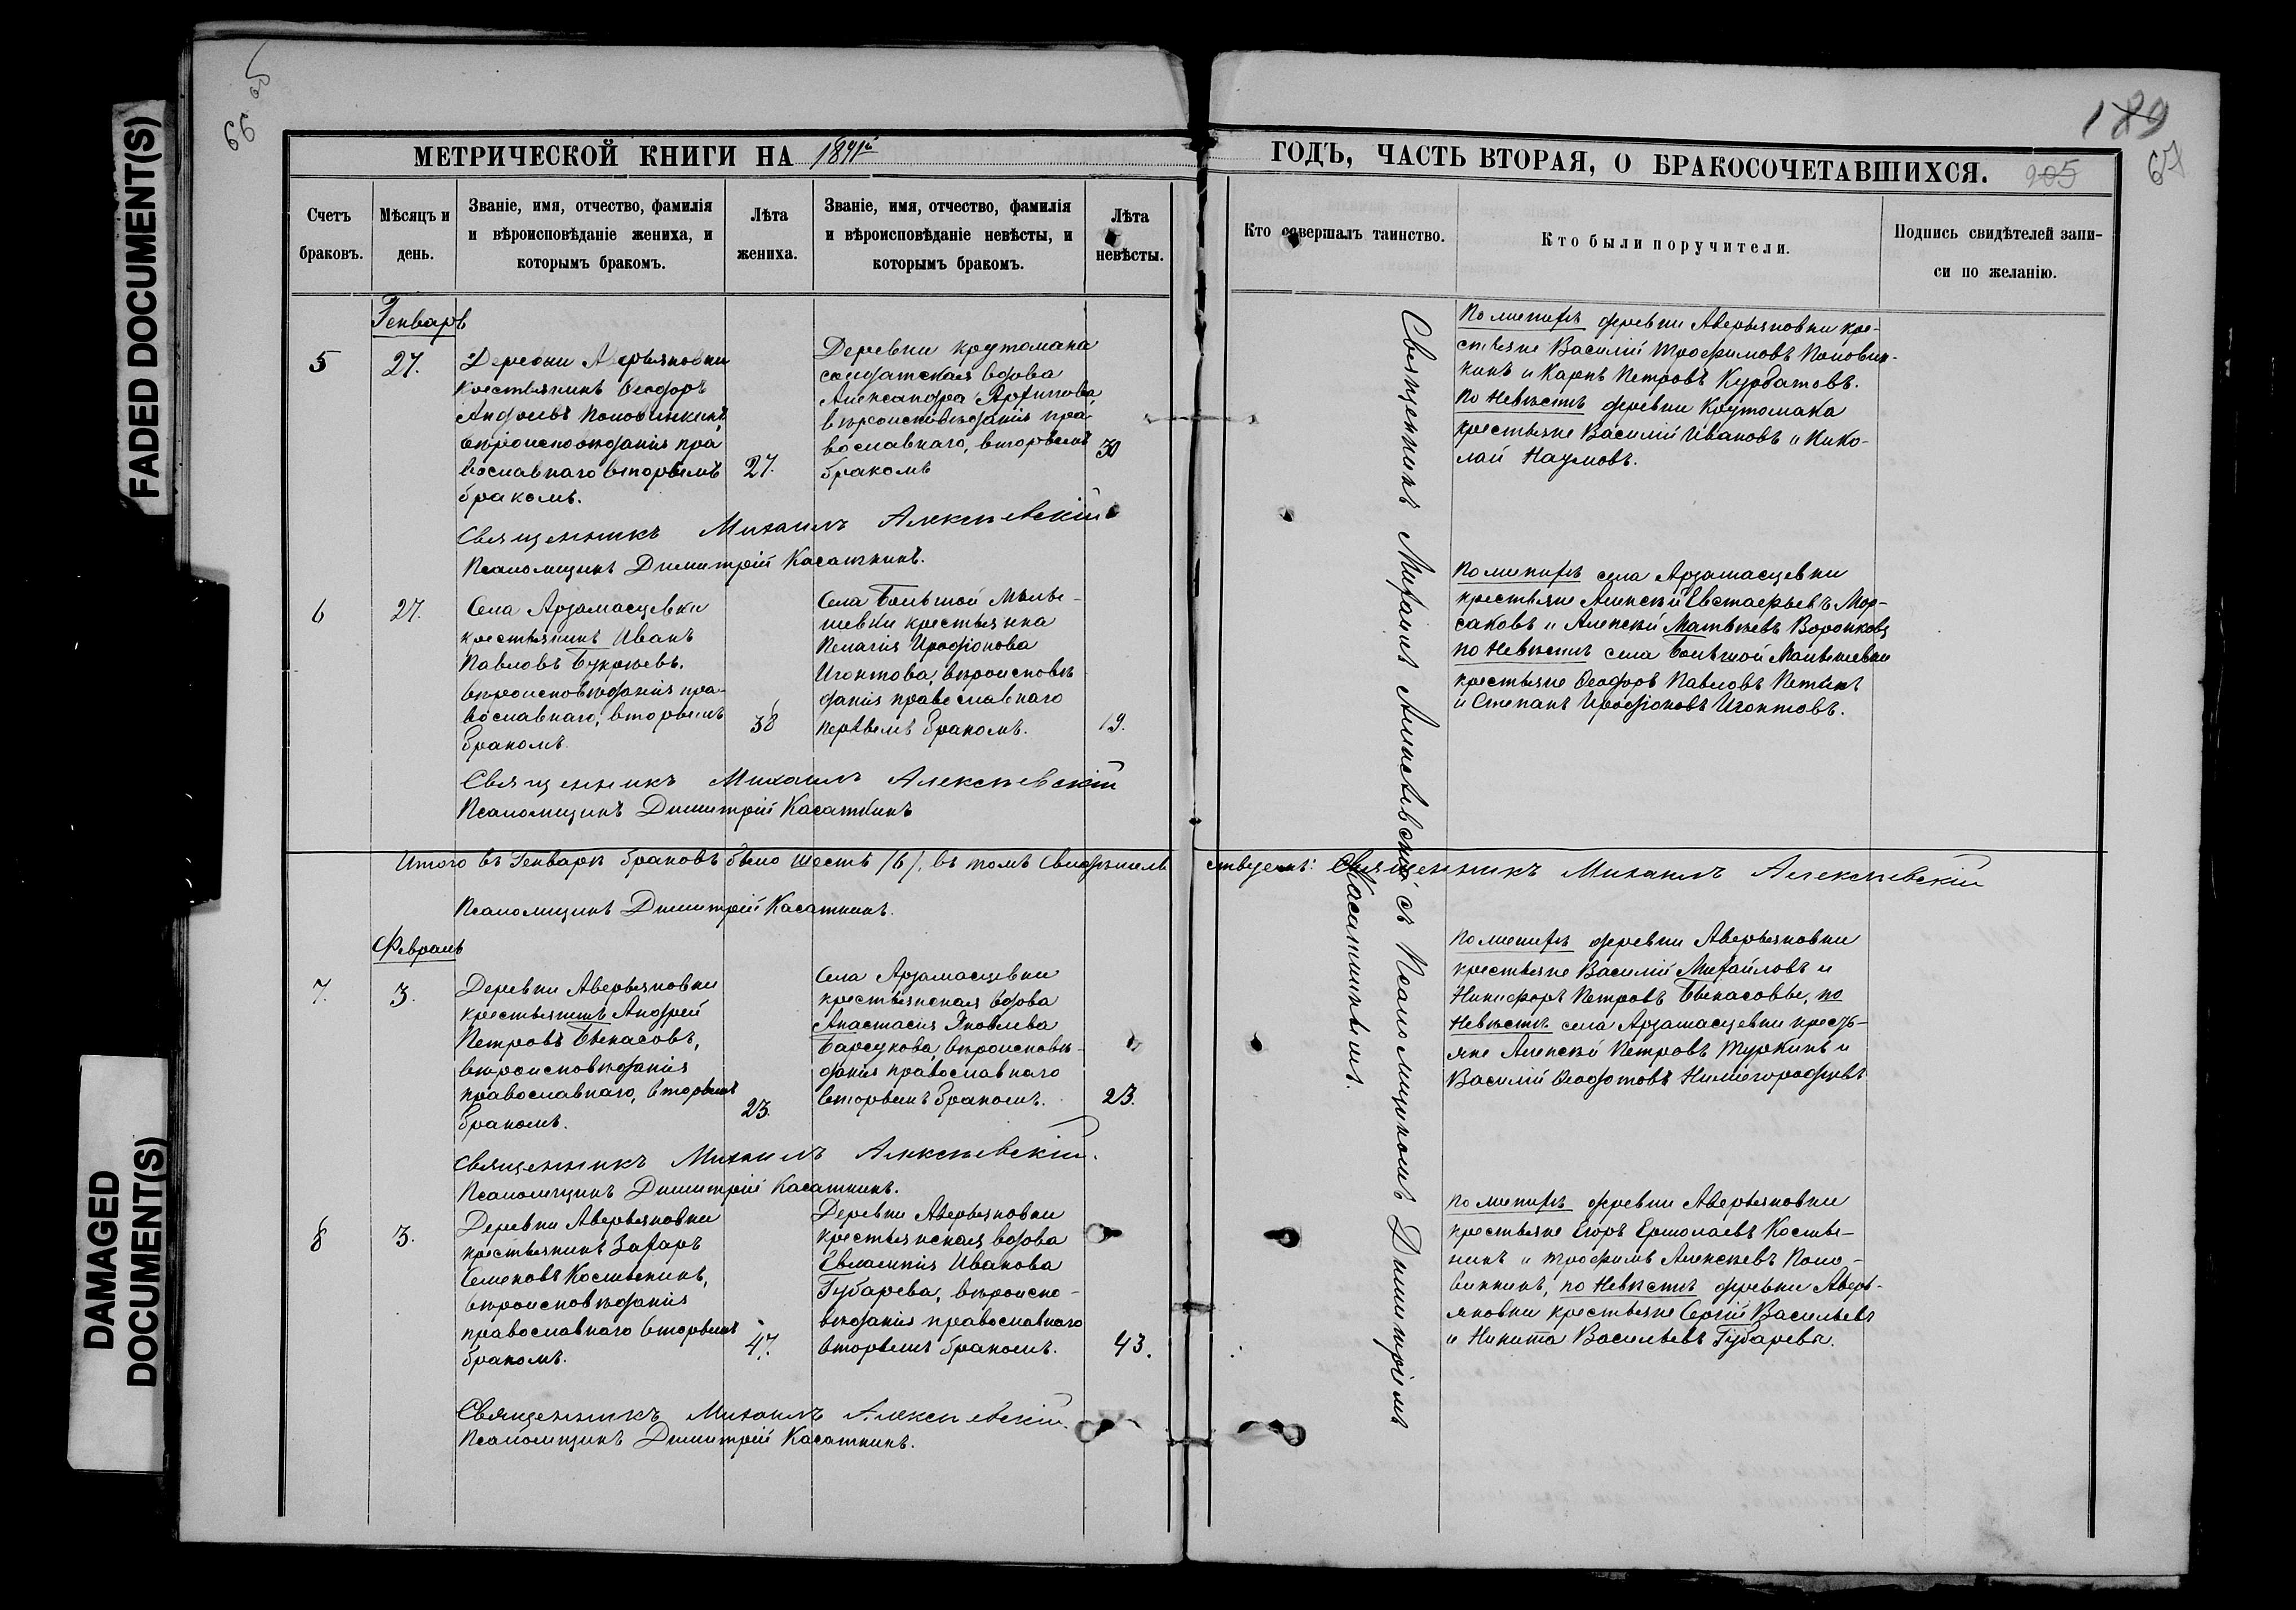 FADED DOCUMENT(S)
DAMAGED
DOCUMENT(S)
66
189
67
205
МЕТРИЧЕСКОЙ КНИГИ НА 1891й
ГОДЪ, ЧАСТЬ ВТОРАЯ, О БРАКОСОЧЕТАВШИХСЯ.
Счетъ
браковъ.
Мѣсяцъ и
день.
Званіе, имя, отчество, фамилія
и вѣроисповѣданіе жениха, и
которымъ бракомъ.
Лѣта
жениха.
Званіе, имя, отчество, фамилія
и вѣроисповѣданіе невѣсты, и
которымъ бракомъ.
Лѣта
невѣсты.
Кто совершалъ таинство.
Кто были поручители.
Подпись свидѣтелей запи-
си по желанію.
Генварь
5
27.
Деревни Аверьяновки
крестьянинъ Ѳеодоръ
Андреевъ Половинкинъ,
вѣроисповѣданія пра
вославнаго вторымъ
бракомъ.
27.
Деревни Крутомака
солдатская вдова
Александра Архипова,
вѣроисповѣданія пра-
вославнаго, вторымъ
бракомъ
30
По женихѣ деревни Аверьяновки кре-
стьяне Василій Трофимовъ Половин-
кинъ и Карпъ Петровъ Курбатовъ.
По невѣстѣ деревни Крутомака
крестьяне Василій Ивановъ и Нико-
лай Наумовъ.
Священникъ Михаилъ Алексѣевскій
Псаломщикъ Димитрій Касаткинъ.
6
27.
Села Арзамасцевки
крестьянинъ Иванъ
Павловъ Букрѣевъ,
вѣроисповѣданія пра-
вославнаго, вторымъ
бракомъ.
38
Села Большой Малы-
шевки крестьянка
Пелагія Иродіонова
Игонтова, вѣроисповѣ
данія православнаго
первымъ бракомъ.
19.
По женихѣ села Арзамасцевки
крестьяне Алексѣй Евстафьевъ Мор-
саковъ и Алексѣй Матвѣевъ Воронковъ
по невѣстѣ села Большой Малышевки
крестьяне Ѳеодоръ Павловъ Петинъ
и Степанъ Иродіоновъ Игонтовъ.
Священникъ Михаилъ Алексѣевскій
Псаломщикъ Димитрій Касаткинъ
Итого въ Генварѣ браковъ было шесть /6/, въ томъ свидѣтель
ствуемъ: Священникъ Михаилъ Алексѣевскій
Псаломщикъ Димитрій Касаткинъ.
Февраль
7.
3.
Деревни Аверьяновки
крестьянинъ Андрей
Петровъ Бекасовъ,
вѣроисповѣданія
православнаго, вторымъ
бракомъ.
23.
Села Арзамасцевки
крестьянская вдова
Анастасія Яковлева
Барсукова, вѣроисповѣ-
данія православнаго
вторымъ бракомъ.
23.
По женихѣ деревни Аверьяновки
крестьяне Василій Михайловъ и
Никифоръ Петровъ Бекасовы, по
невѣстѣ села Арзамасцевки кресть-
яне Алексѣй Петровъ Туркинъ и
Василій Ѳеодотовъ Нижегородцевъ
Священникъ Михаилъ Алексѣевскій.
Псаломщикъ Димитрій Касаткинъ.
8
3.
Деревни Аверьяновки
крестьянинъ Захаръ
Семеновъ Костынинъ,
вѣроисповѣданія
православнаго вторымъ
бракомъ.
47.
Деревни Аверьяновки
крестьянская вдова
Евлампія Иванова
Губарева, вѣроиспо-
вѣданія православнаго
вторымъ бракомъ.
43.
По женихѣ деревни Аверьяновки
крестьяне Егоръ Ермолаевъ Косты-
нинъ и Трофимъ Алексѣевъ Поло-
винкинъ, по невѣстѣ деревни Аверь-
яновки крестьяне Сергій Васильевъ
и Никита Васильевъ Губаревы.
Священникъ Михаилъ Алексѣевскій
Псаломщикъ Димитрій Касаткинъ.
Священникъ Михаилъ Алексѣевскій съ Псаломщикомъ Димитріемъ
Касаткинымъ.